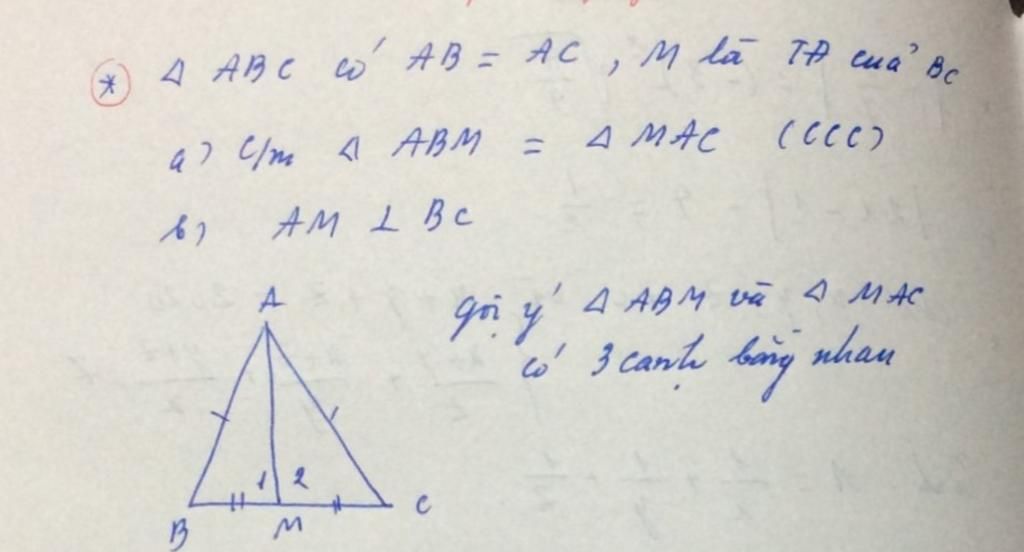 * Δ ABC có AB = AC, M là TĐ của BC
a) C/m Δ ABM = Δ MAC (CCC)
b) AM ⊥ BC
A
gợi ý Δ ABM và Δ MAC
có 3 cạnh bằng nhau
1 2
B M C